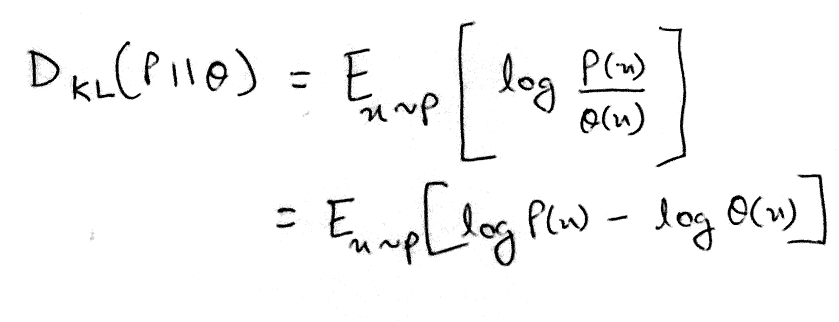 D_KL(P||Q) = E_x~P [ log P(x)/Q(x) ]
= E_x~P [ log P(x) - log Q(x) ]